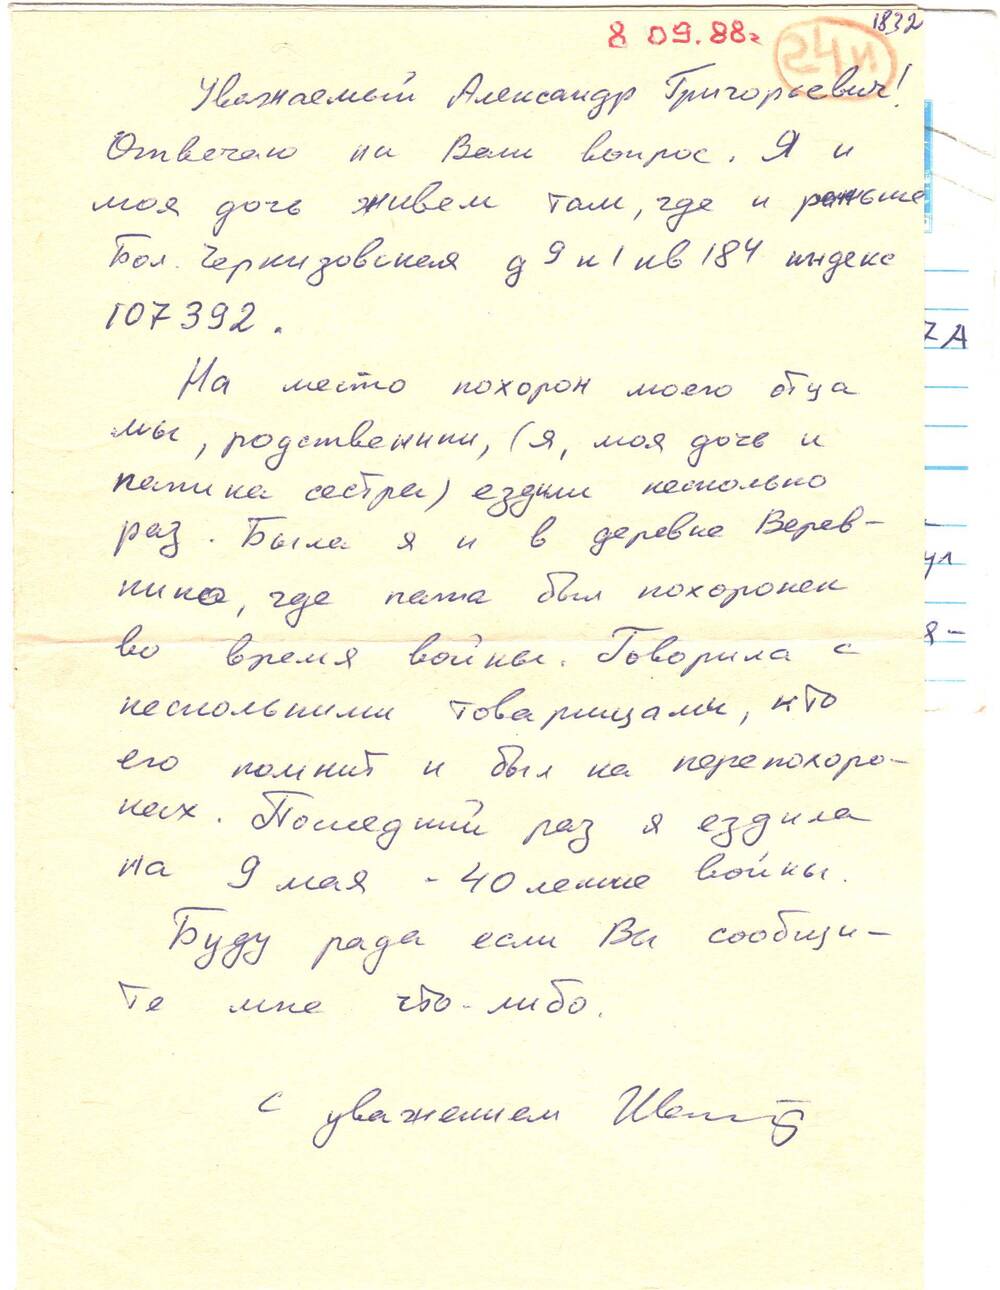 1832
8 09.88г
24и
Уважаемый Александр Григорьевич!
Отвечаю на Ваш вопрос. Я и
моя дочь живем там, где и раньше
Бол. Черкизовская д 9 к 1 кв 184 индекс
107392.
На место похорон моего отца
мы, родственники, (я, моя дочь и
папина сестра) ездили несколько
раз. Была я и в деревне Верев-
кино, где папа был похоронен
во время войны. Говорила с
несколькими товарищами, кто
его помнит и был на перепохоро-
нах. Последний раз я ездила
на 9 мая - 40 летие войны.
Буду рада если Вы сообщи-
те мне что-либо.
С уважением
7А
ул
я-